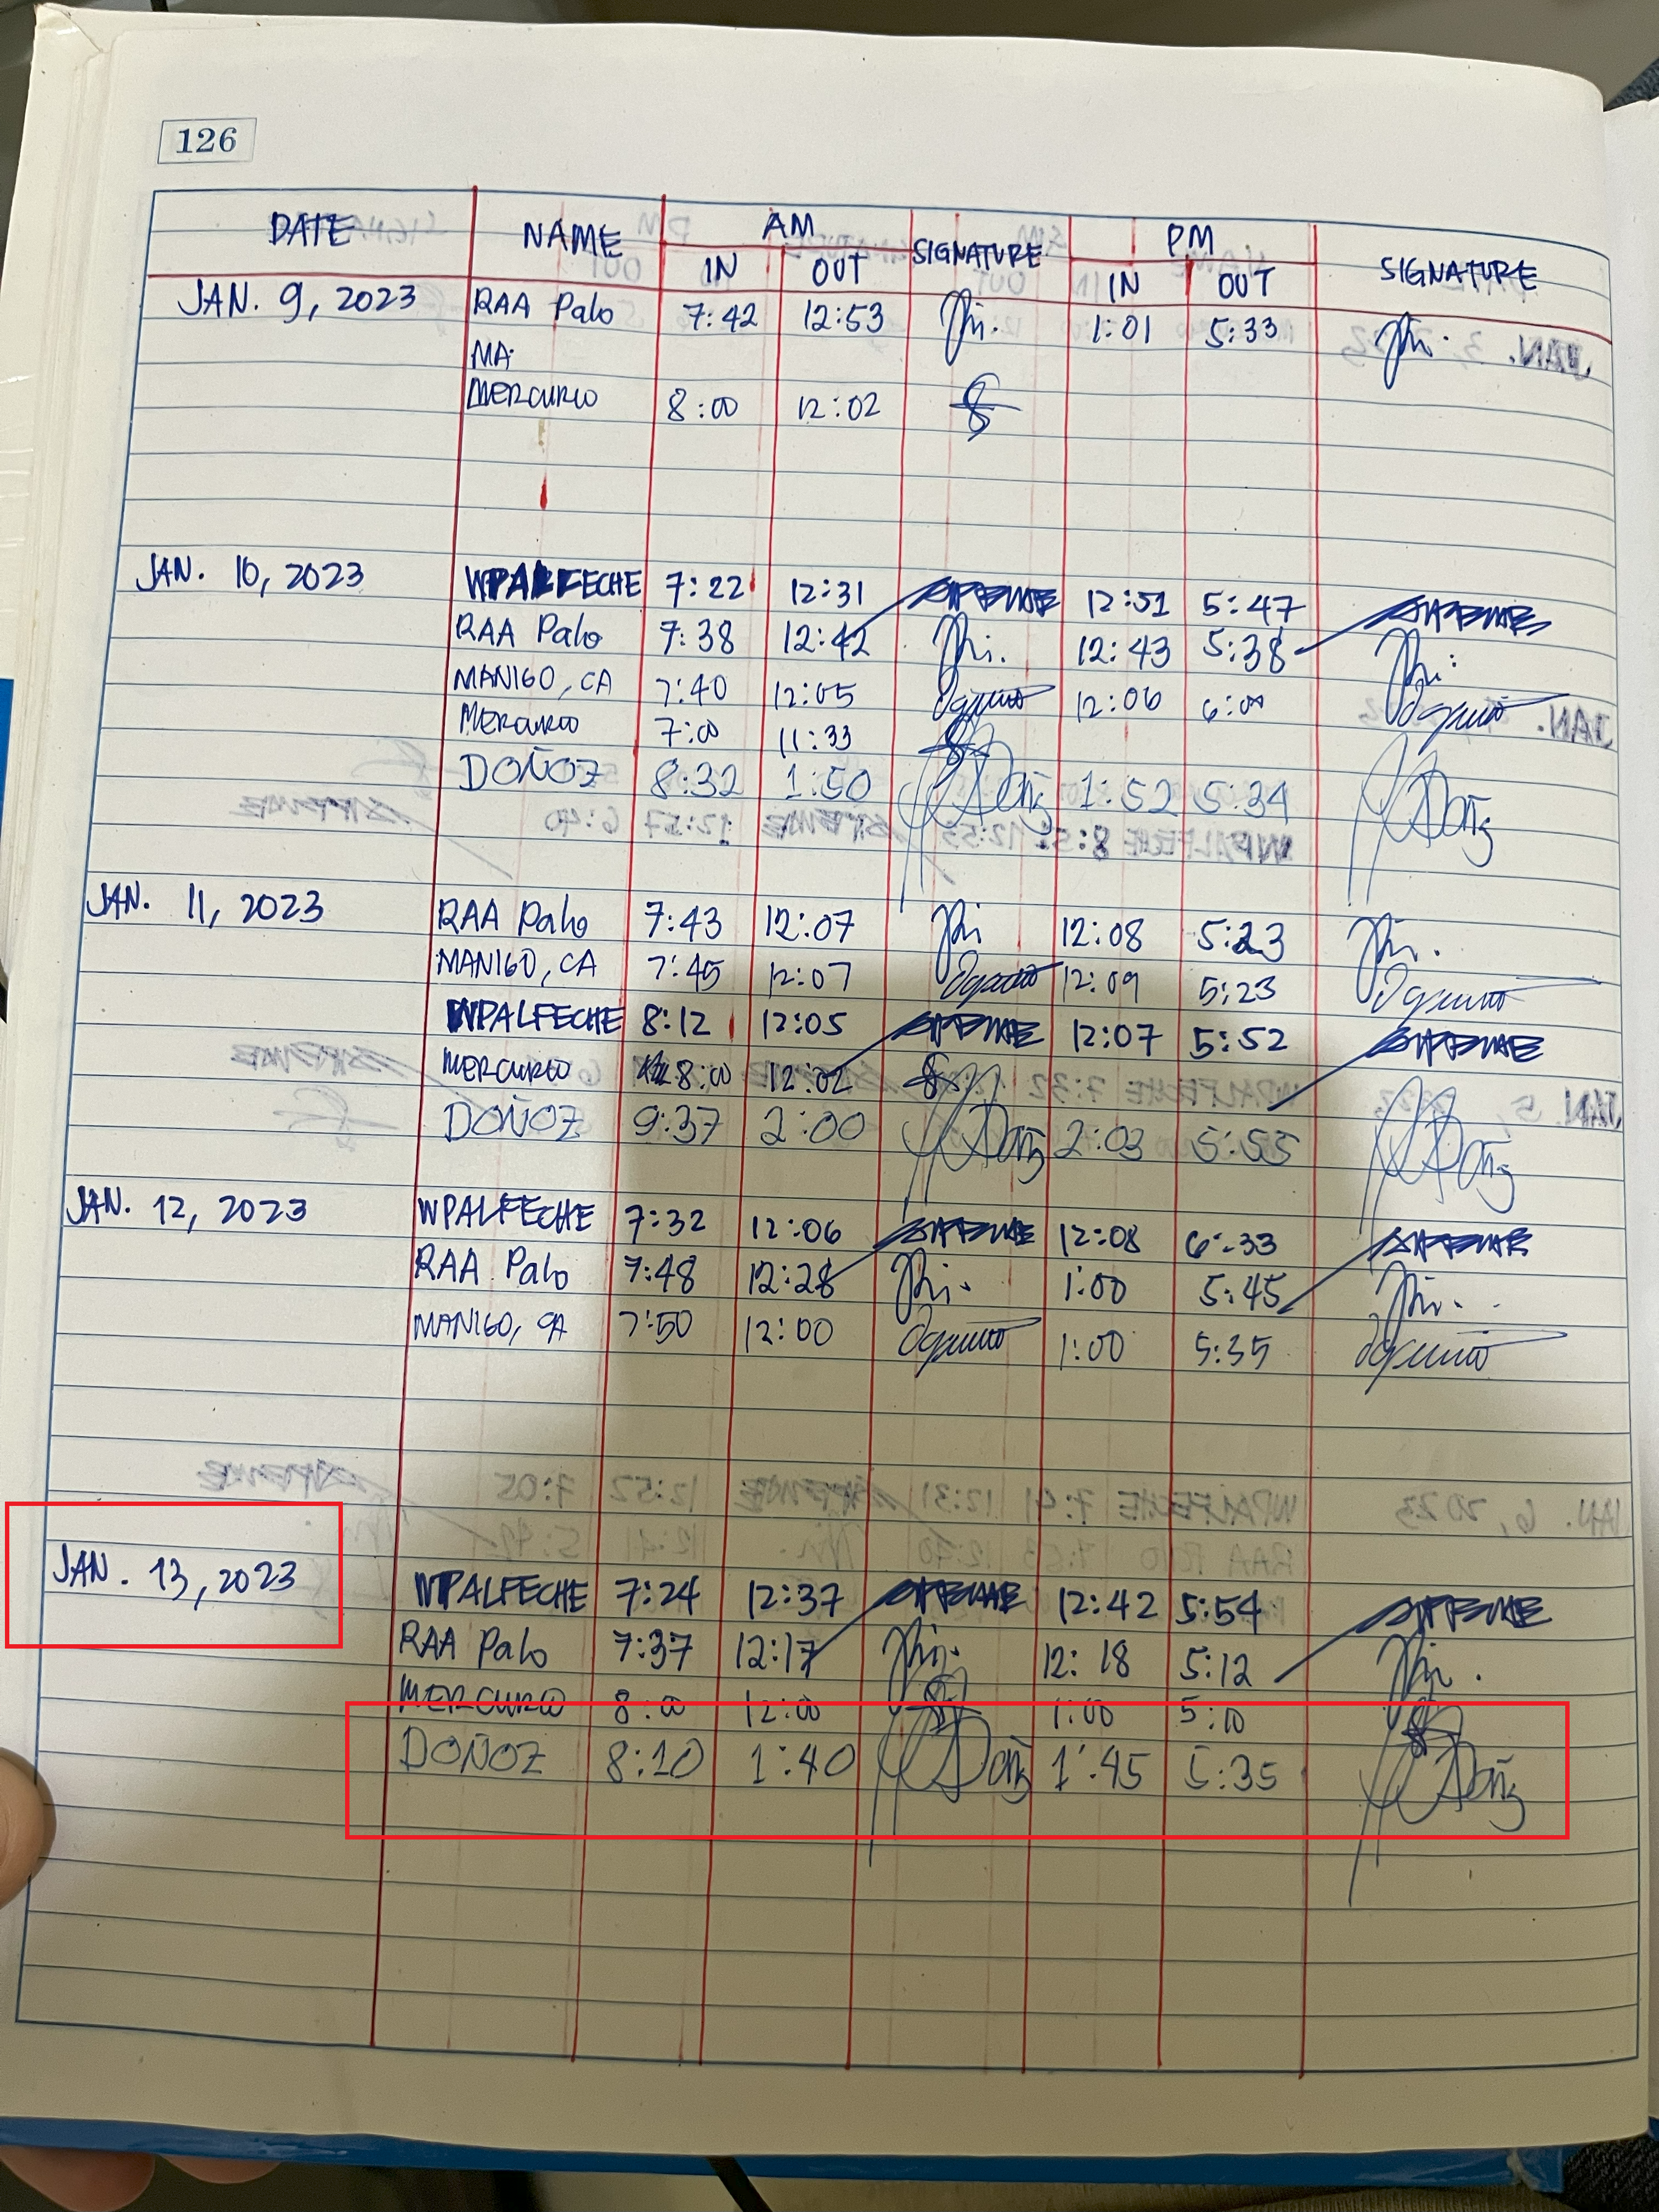 126
DATE NAME AM SIGNATURE PM SIGNATURE
IN OUT IN OUT
JAN. 9, 2023 RAA Palo 7:42 12:53 1:01 5:33
MA.
MERCURIO 8:00 12:02
JAN. 10, 2023 WPALFECHE 7:22 12:31 12:51 5:47
RAA Palo 7:38 12:42 12:43 5:38
MANIGO, CA 7:40 12:05 12:06 6:00
MERCURIO 7:00 11:33
DOÑOZ 8:32 1:50 1:52 5:34
JAN. 11, 2023 RAA Palo 7:43 12:07 12:08 5:23
MANIGO, CA 7:45 12:07 12:09 5:23
WPALFECHE 8:12 12:05 12:07 5:52
MERCURIO 8:00 12:02
DOÑOZ 9:37 2:00 2:03 5:55
JAN. 12, 2023 WPALFECHE 7:32 12:06 12:08 6:33
RAA Palo 7:48 12:28 1:00 5:45
MANIGO, CA 7:50 12:00 1:00 5:35
JAN. 13, 2023 WPALFECHE 7:24 12:37 12:42 5:54
RAA Palo 7:37 12:17 12:18 5:12
MERCURIO 8:00 12:00 1:00 5:10
DOÑOZ 8:10 1:40 1:45 5:35